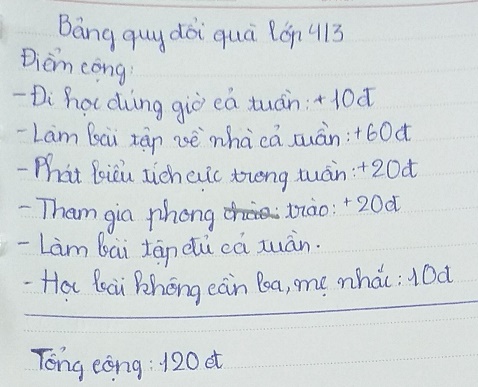 Bảng quy đổi quà lớp 4/3
Điểm cộng:
- Đi học đúng giờ cả tuần: +10đ
- Làm bài tập về nhà cả tuần: +60đ
- Phát biểu tích cực trong tuần: +20đ
- Tham gia phong trào: +20đ
- Làm bài tập đủ cả tuần.
- Học bài không cần ba, mẹ nhắc: 10đ
Tổng cộng: 120đ